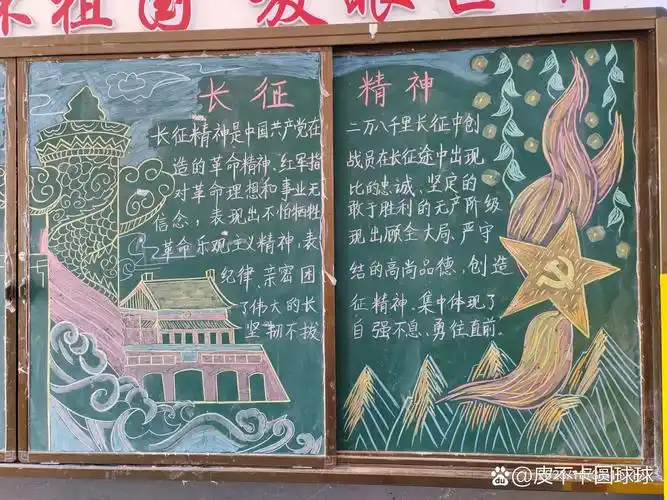 祖国 放眼
长征 精神
长征精神是中国共产党在二万八千里长征中创
造的革命精神、红军指战员在长征途中出现
对革命理想和事业无比的忠诚、坚定的
信念，表现出不怕牺牲敢于胜利的无产阶级
革命乐观主义精神，表现出顾全大局、严守
纪律、亲密团结的高尚品德，创造
了伟大的长征精神，集中体现了
坚韧不拔自强不息、勇往直前.
Bai du @皮不卡圆球球